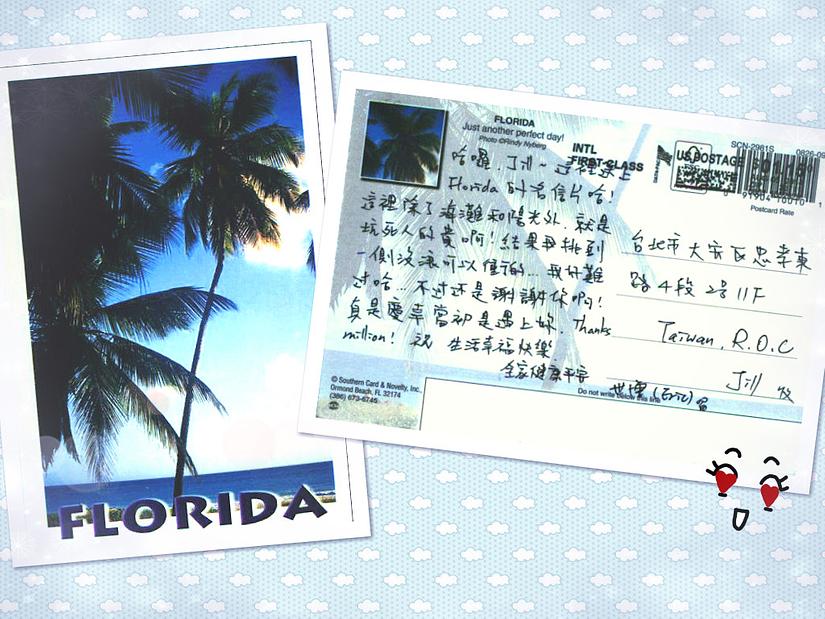 FLORIDA
FLORIDA
Just another perfect day!
Photo ©Rindy Nyberg
INTL
FIRST-CLASS
US POSTAGE
SCN-2981S
Postcard Rate
哈囉, Jill~ 這裡送上
Florida 的名信片哈!
這裡除了海灘和陽光外, 就是
坑死人的貴啊! 結果再挑到
一側沒滾可以僅的... 我好難
过哈... 不过还是謝謝你啊!
真是慶幸當初是遇上妳. Thanks
million! 祝 生活幸福快樂
全家健康平安
世博 (Eric) 留
台北市大安區忠孝東
路4段2号11F
Taiwan, R.O.C
Jill 收
© Southern Card & Novelty, Inc.
Ormond Beach, FL 32174
(386) 673-6746
Do not write below this line